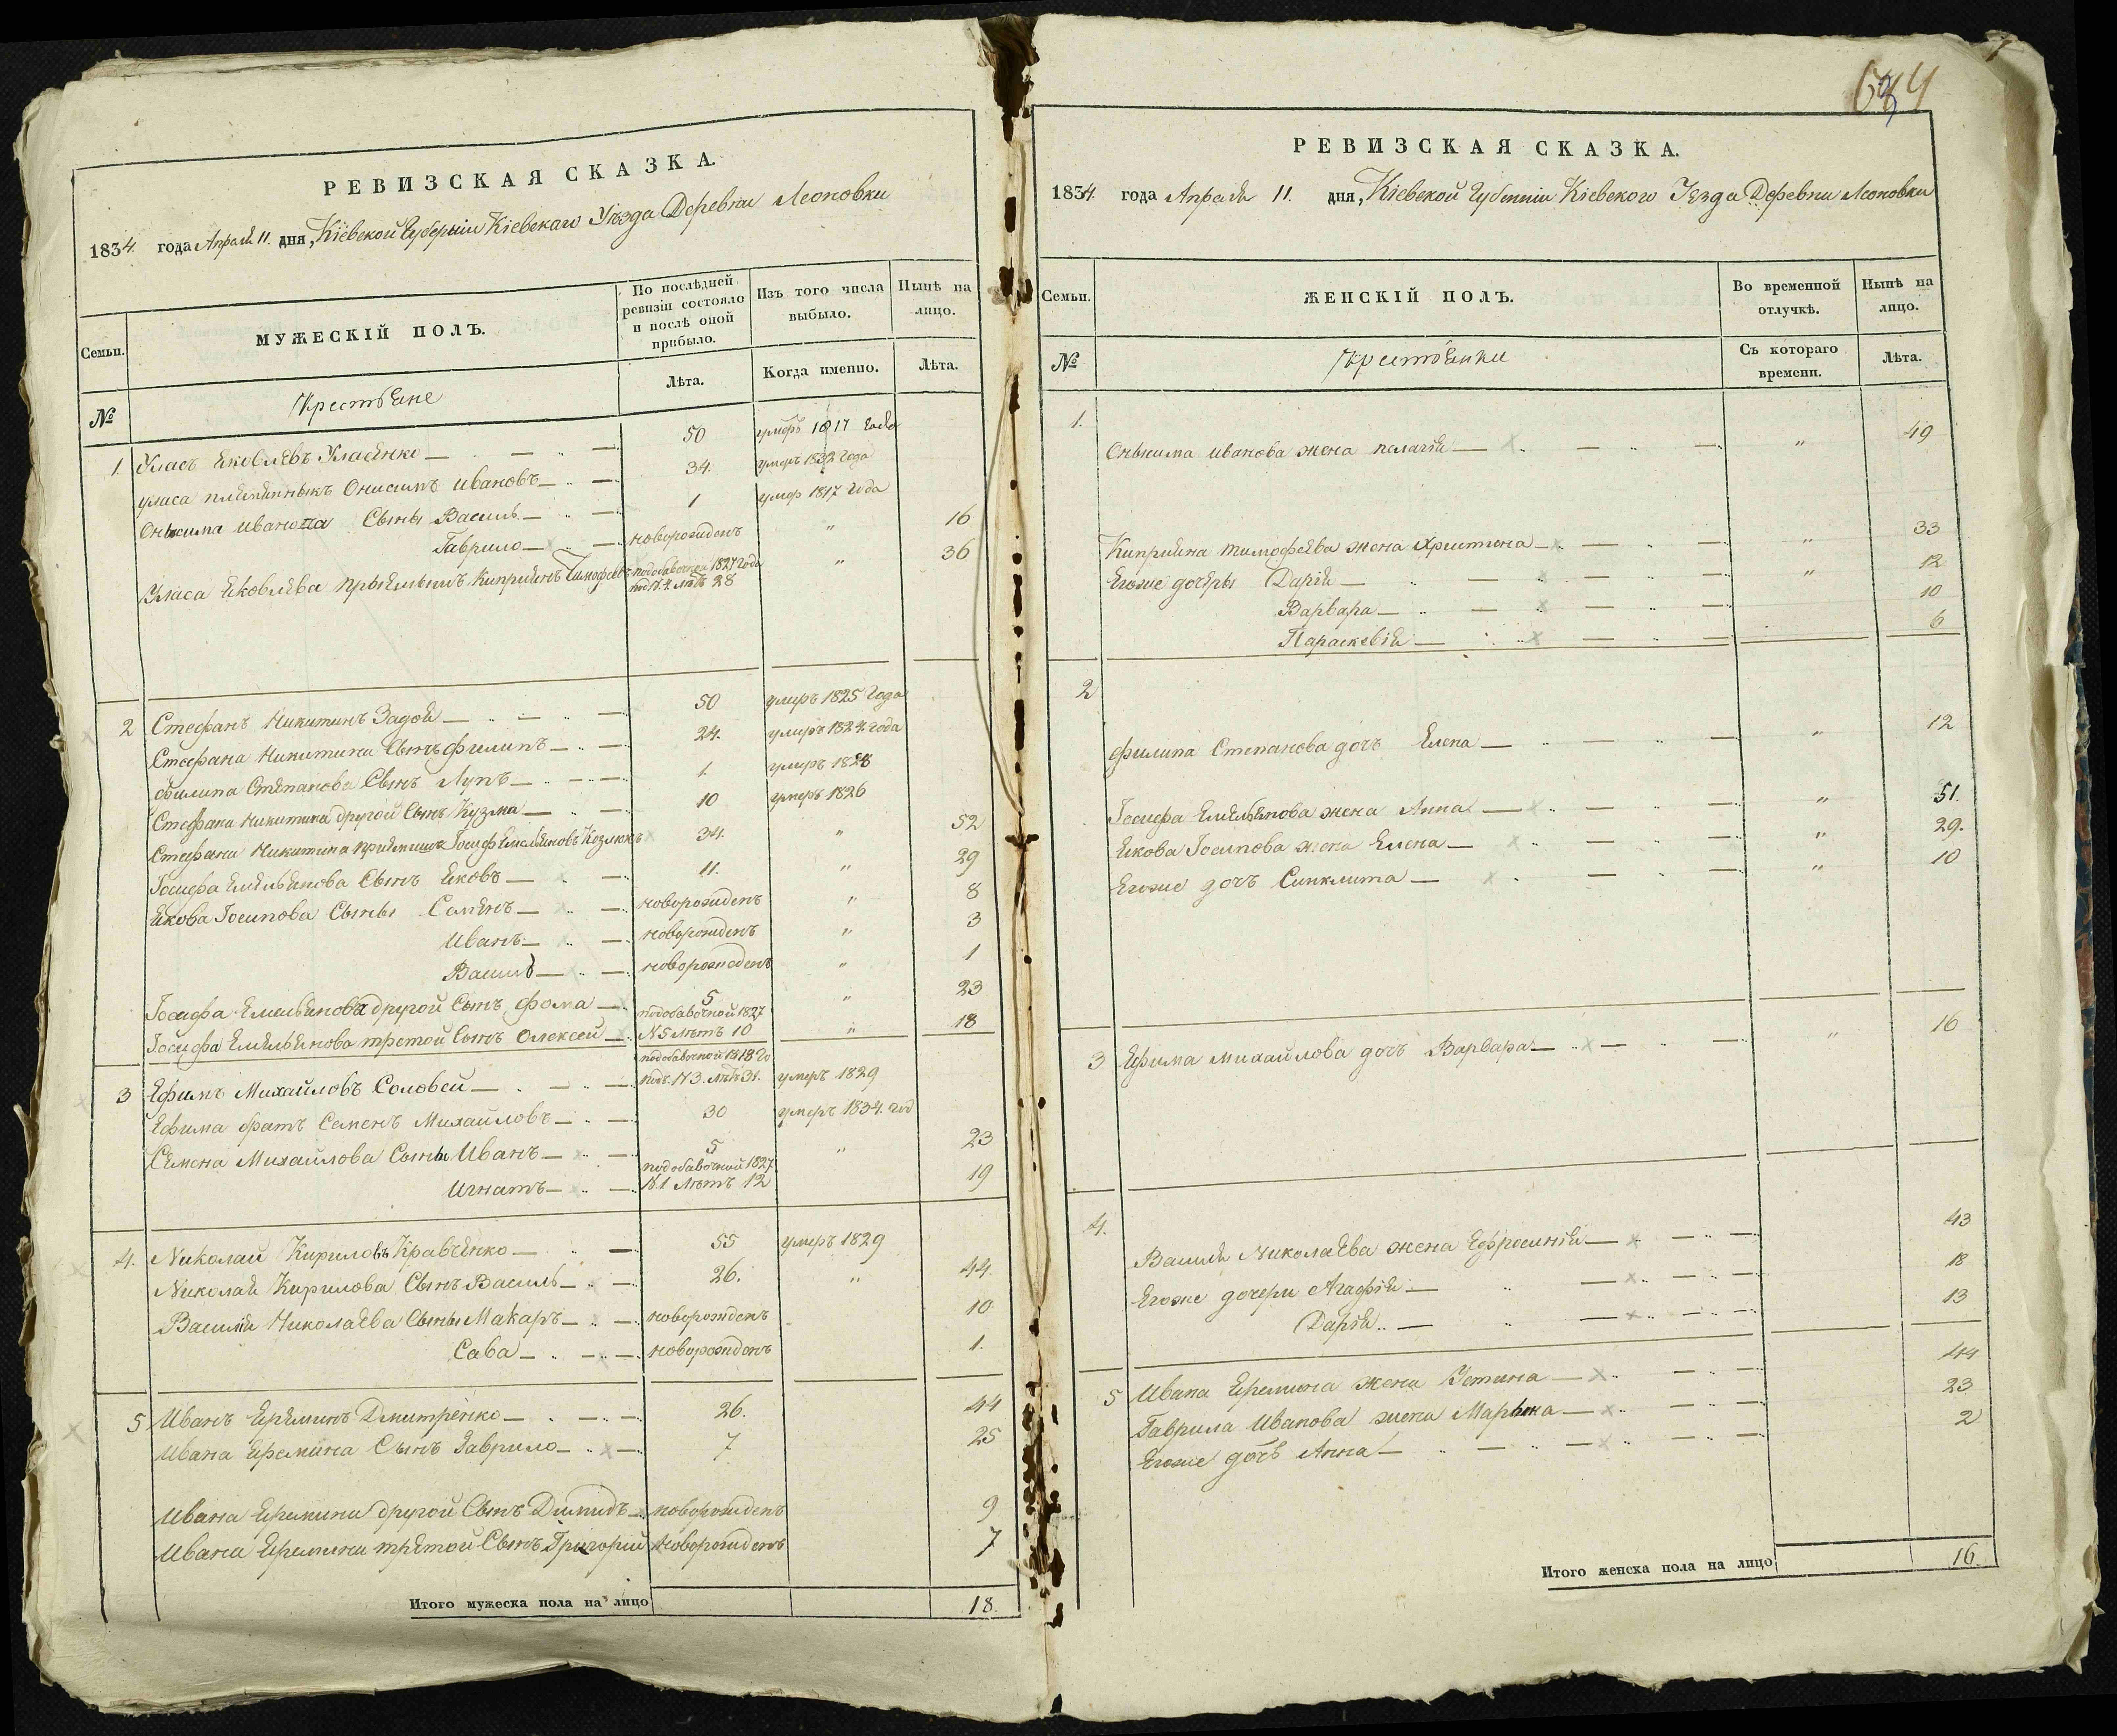 РЕВИЗСКАЯ СКАЗКА.
1834. года Апреля 11. дня, Кіевской Губерніи Кіевскаго Уѣзда Деревни Леоновки
Семьи.
МУЖЕСКІЙ ПОЛЪ.
По послѣдней ревизіи состояло и послѣ оной прибыло.
Изъ того числа выбыло.
Нынѣ на лицо.
№
Крестьяне
Лѣта.
Когда именно.
Лѣта.
1 Уласъ Яковлевъ Уласенко 50 умеръ 1817 года
Уласа племянникъ Онисимъ Ивановъ 34. умеръ 1832 года
Онысима Иванова Сыны Василь 1 умер 1817 года
Гаврило новорожденъ " 16
Уласа Яковлева пріемышъ Кипріянъ Тимофеевъ подобавочной 1827 года под № 4 лѣтъ 28 " 36
2 Стефанъ Никитинъ Задоя 50 умеръ 1825 года
Стефана Никитина Сынъ Филипъ 24. умеръ 1824 года
Филипа Степанова Сынъ Лупъ 1 умеръ 1828
Стефана Никитина другой Сынъ Кузма 10 умеръ 1826
Стефана Никитина пріемышъ Іосифъ Емельяновъ Козлюкъ 34. " 52
Іосифа Емельянова Сынъ Яковъ 11. " 29
Якова Іосипова Сыны Семенъ новорожденъ " 8
Иванъ новорожденъ " 3
Василь новорожденъ " 1
Іосифа Емельянова другой Сынъ Фома 5 " 23
Іосифа Емельянова третой Сынъ Олексей подобавочной 1827 № 5 лѣтъ 10 " 18
3 Ефимъ Михайловъ Соловей подобавочной 1818 го под. № 3. лѣтъ 31. умеръ 1829
Ефима братъ Семенъ Михайловъ 30 умеръ 1834. год
Семена Михайлова Сыны Иванъ 5 " 23
Игнатъ подобавочной 1827. № 1 лѣтъ 12 19
4. Николай Кириловъ Кравченко 55 умеръ 1829
Николая Кирилова Сынъ Василь 26. " 44
Василія Николаева Сыны Макаръ новорожденъ 10
Сава новорожденъ 1.
5 Иванъ Ереминъ Дмитренко 26. 44
Ивана Еремина Сынъ Гаврило 7 25
Ивана Еремина другой Сынъ Димидъ новорожденъ 9
Ивана Еремина третой Сынъ Григорий новорожденъ 7
Итого мужеска пола на лицо 18.
РЕВИЗСКАЯ СКАЗКА.
1834. года Апреля 11. дня, Кіевской Губерніи Кіевского Уезда Деревни Леоновки
Семьи.
ЖЕНСКІЙ ПОЛЪ.
Во временной отлучкѣ.
Нынѣ на лицо.
№
Крестьянки
Съ котораго времени.
Лѣта.
1. Онысима Иванова жена Пелагія " 49
Кипріяна Тимофеева жена Христина " 33
Егоже дочеры Дарія " 12
Варвара 10
Параскевія 6
2
Филипа Степанова дочъ Елена " 12
Іосифа Емельянова жена Анна " 51.
Якова Іосипова жена Елена " 29.
Егоже дочъ Синклита " 10
3 Ефима Михайлова дочъ Варвара " 16
4.
Василя Николаева жена Ефросинія 43
Егоже дочери Агафія 18
Дарія 13
5 Ивана Еремина жена Устина 44
Гаврила Иванова жена Марына 23
Егоже дочъ Анна 2
Итого женска пола на лицо 16.